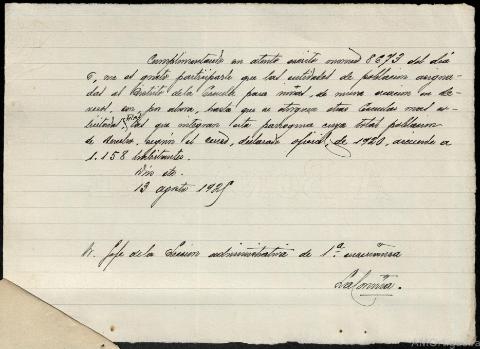 Cumplimentando su atento escrito num 8273 del día
6, me es grato participarle que las entidades de poblacion asigna-
das al Distrito de la Escuela para niñas, de nueva creacion en
son, por ahora, hasta que se otorguen otras Escuelas mas
las que integran esta parroquia cuya total poblacion
de derecho, según el censo, declarado oficial, de 1920, asciende a
1.158 habitantes.
Dios etc.
13 agosto 1925
Sr. Jefe de la Seccion administrativa de 1ª enseñanza
La Coruña.